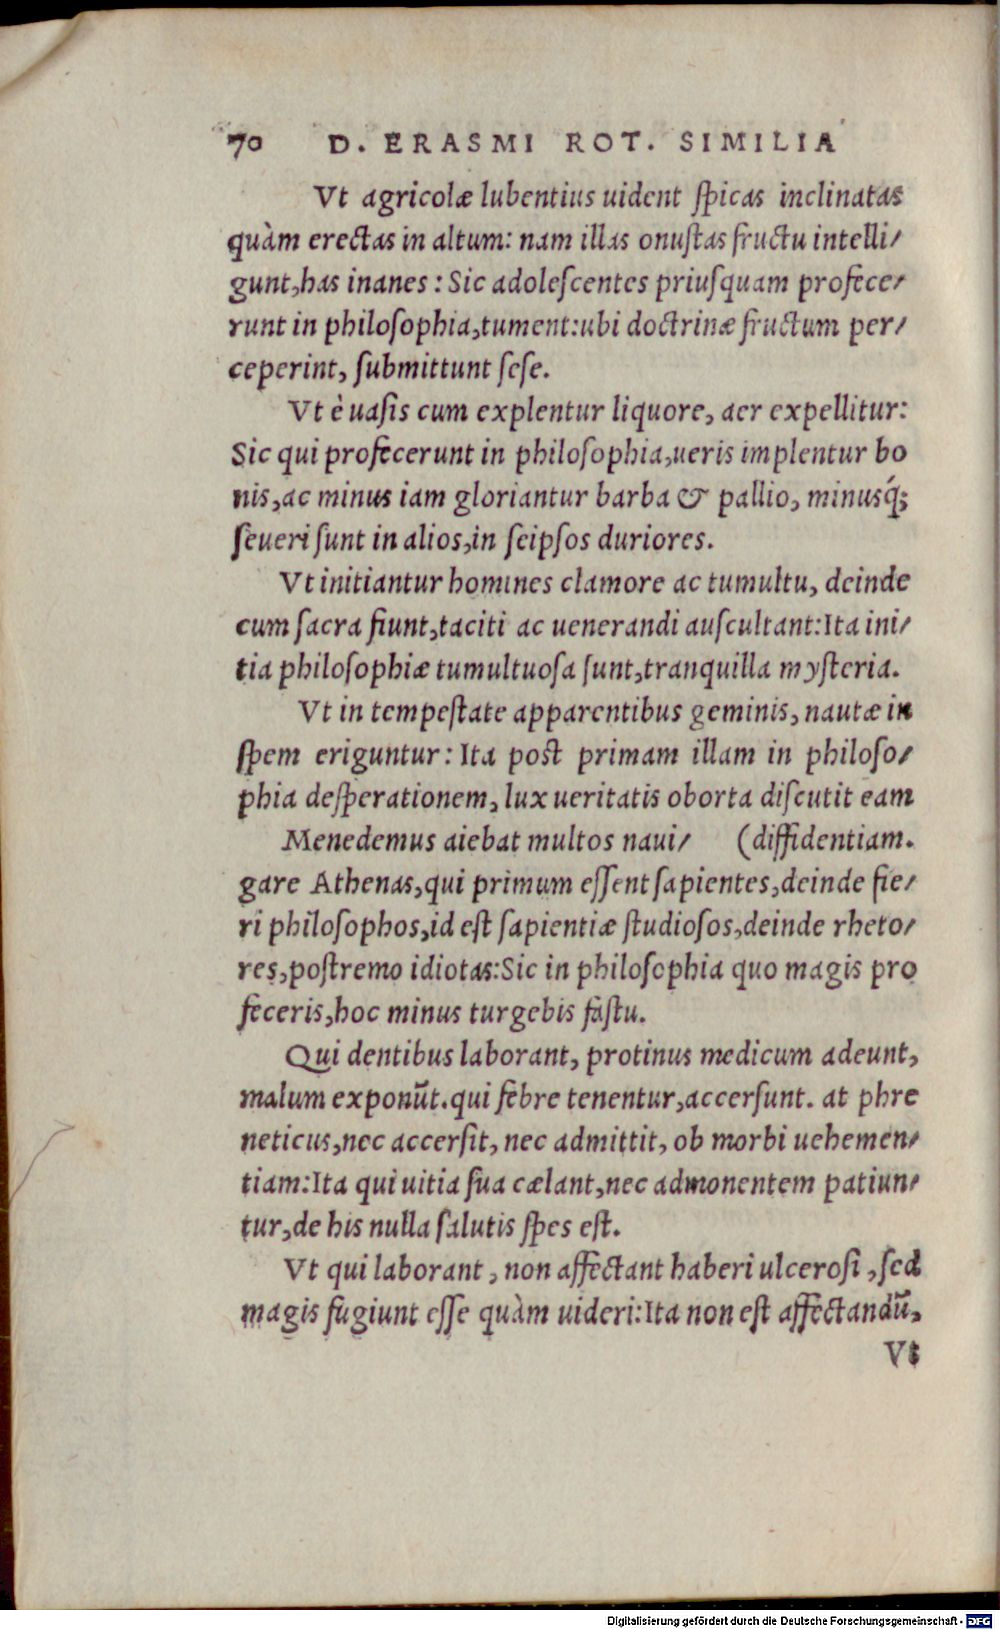 70 D. ERASMI ROT. SIMILIA
Vt agricolæ lubentius uident ſpicas inclinatas
quàm erectas in altum: nam illas onuſtas fructu intelli/
gunt, has inanes : Sic adoleſcentes priuſquam profece/
runt in philoſophia, tument: ubi doctrinæ fructum per/
ceperint, ſubmittunt ſeſe.
Vt è uaſis cum explentur liquore, aer expellitur:
Sic qui profecerunt in philoſophia, ueris implentur bo
nis, ac minus iam gloriantur barba & pallio, minusq́;
ſeueri ſunt in alios, in ſeipſos duriores.
Vt initiantur homines clamore ac tumultu, deinde
cum ſacra fiunt, taciti ac uenerandi auſcultant: Ita ini/
tia philoſophiæ tumultuoſa ſunt, tranquilla myſteria.
Vt in tempeſtate apparentibus geminis, nautæ in
ſpem eriguntur: Ita poſt primam illam in philoſo/
phia deſperationem, lux ueritatis oborta diſcutit eam
Menedemus aiebat multos naui/ (diffidentiam.
gare Athenas, qui primum eſſent ſapientes, deinde fie/
ri philoſophos, id eſt ſapientiæ ſtudioſos, deinde rheto/
res, poſtremo idiotas: Sic in philoſophia quo magis pro
feceris, hoc minus turgebis faſtu.
Qui dentibus laborant, protinus medicum adeunt,
malum exponũt. qui febre tenentur, accerſunt. at phre
neticus, nec accerſit, nec admittit, ob morbi uehemen/
tiam: Ita qui uitia ſua cælant, nec admonentem patiun/
tur, de his nulla ſalutis ſpes eſt.
Vt qui laborant, non affectant haberi ulceroſi, ſed
magis fugiunt eſſe quàm uideri: Ita non eſt affectandũ,
Vt
Digitalisierung gefördert durch die Deutsche Forschungsgemeinschaft - DFG